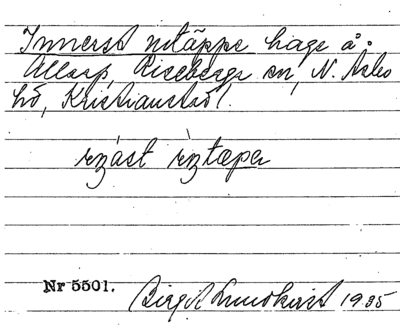 Innerst intäppe hage å.
Allarp, Riseberga sn, N. Åsbo
hd, Kristianstad l.
Nr 5501. Birgit Lundkvist 1935